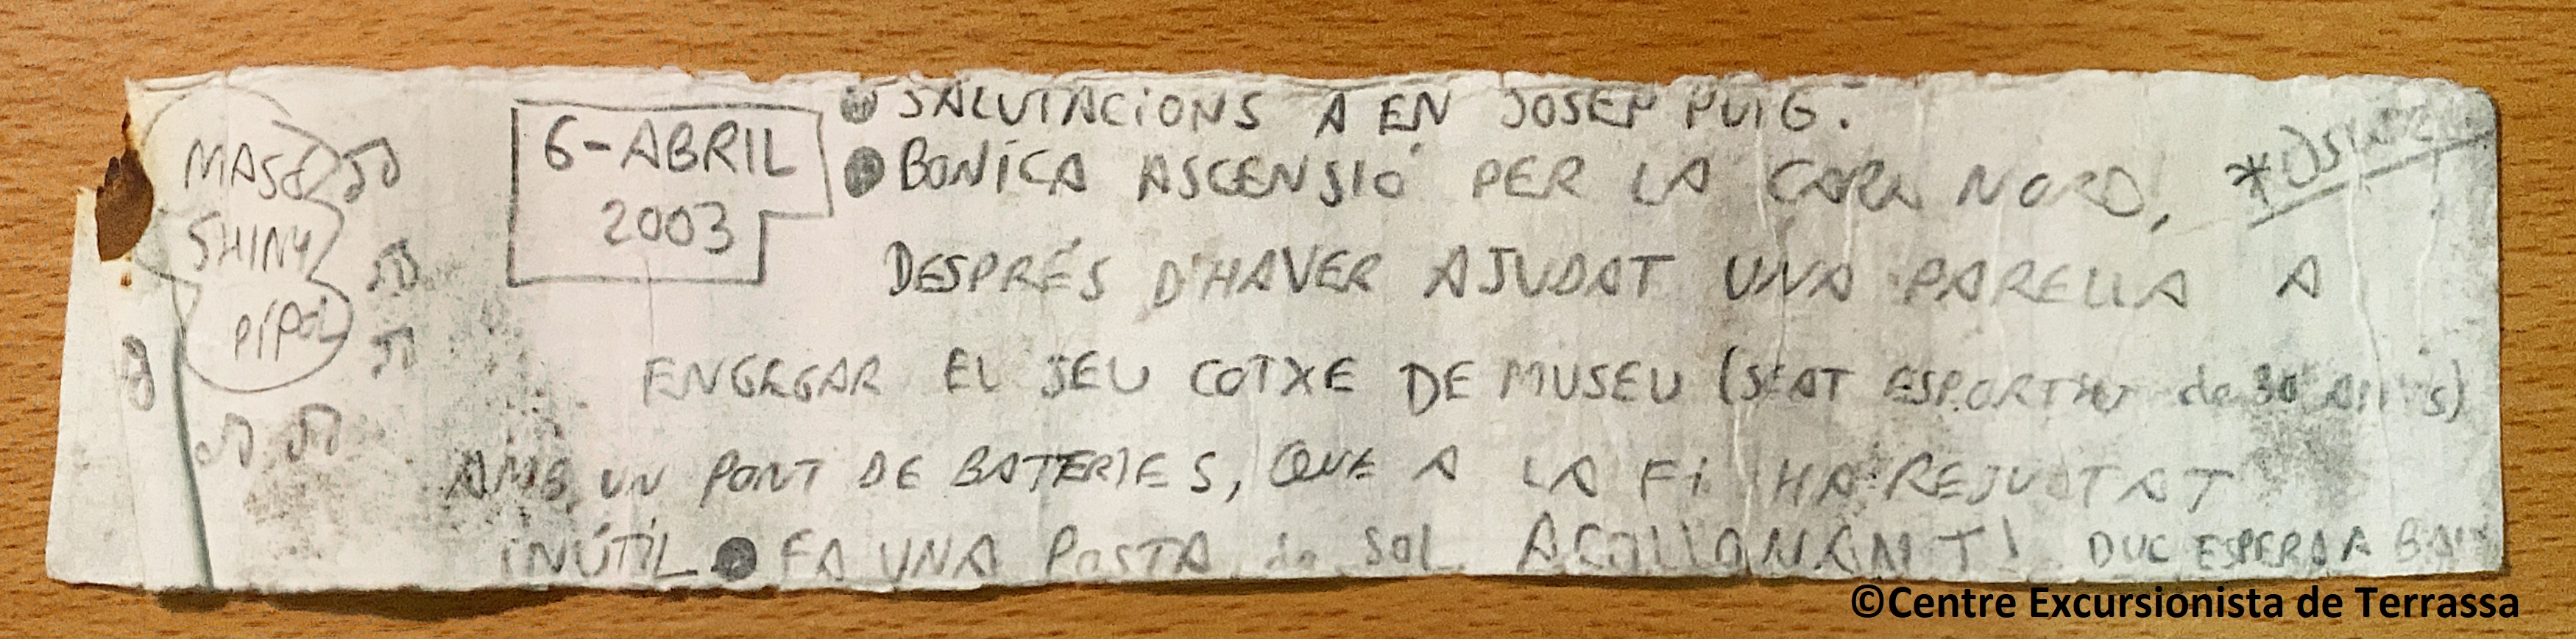 SALUTACIONS A EN JOSEP PUIG.
6-ABRIL
2003
BONICA ASCENSIÓ PER LA CARA NORD,
SHINY
DESPRÉS D'HAVER AJUDAT UNA PARELLA A
ENGEGAR EL SEU COTXE DE MUSEU (SEAT ESPORTIU de 30 ANYS)
AMB UN PONT DE BATERIES, QUE A LA FI HA
INÚTIL FA UNA POSTA de SOL ACOLLONANT! DUC ESPERA A
©Centre Excursionista de Terrassa